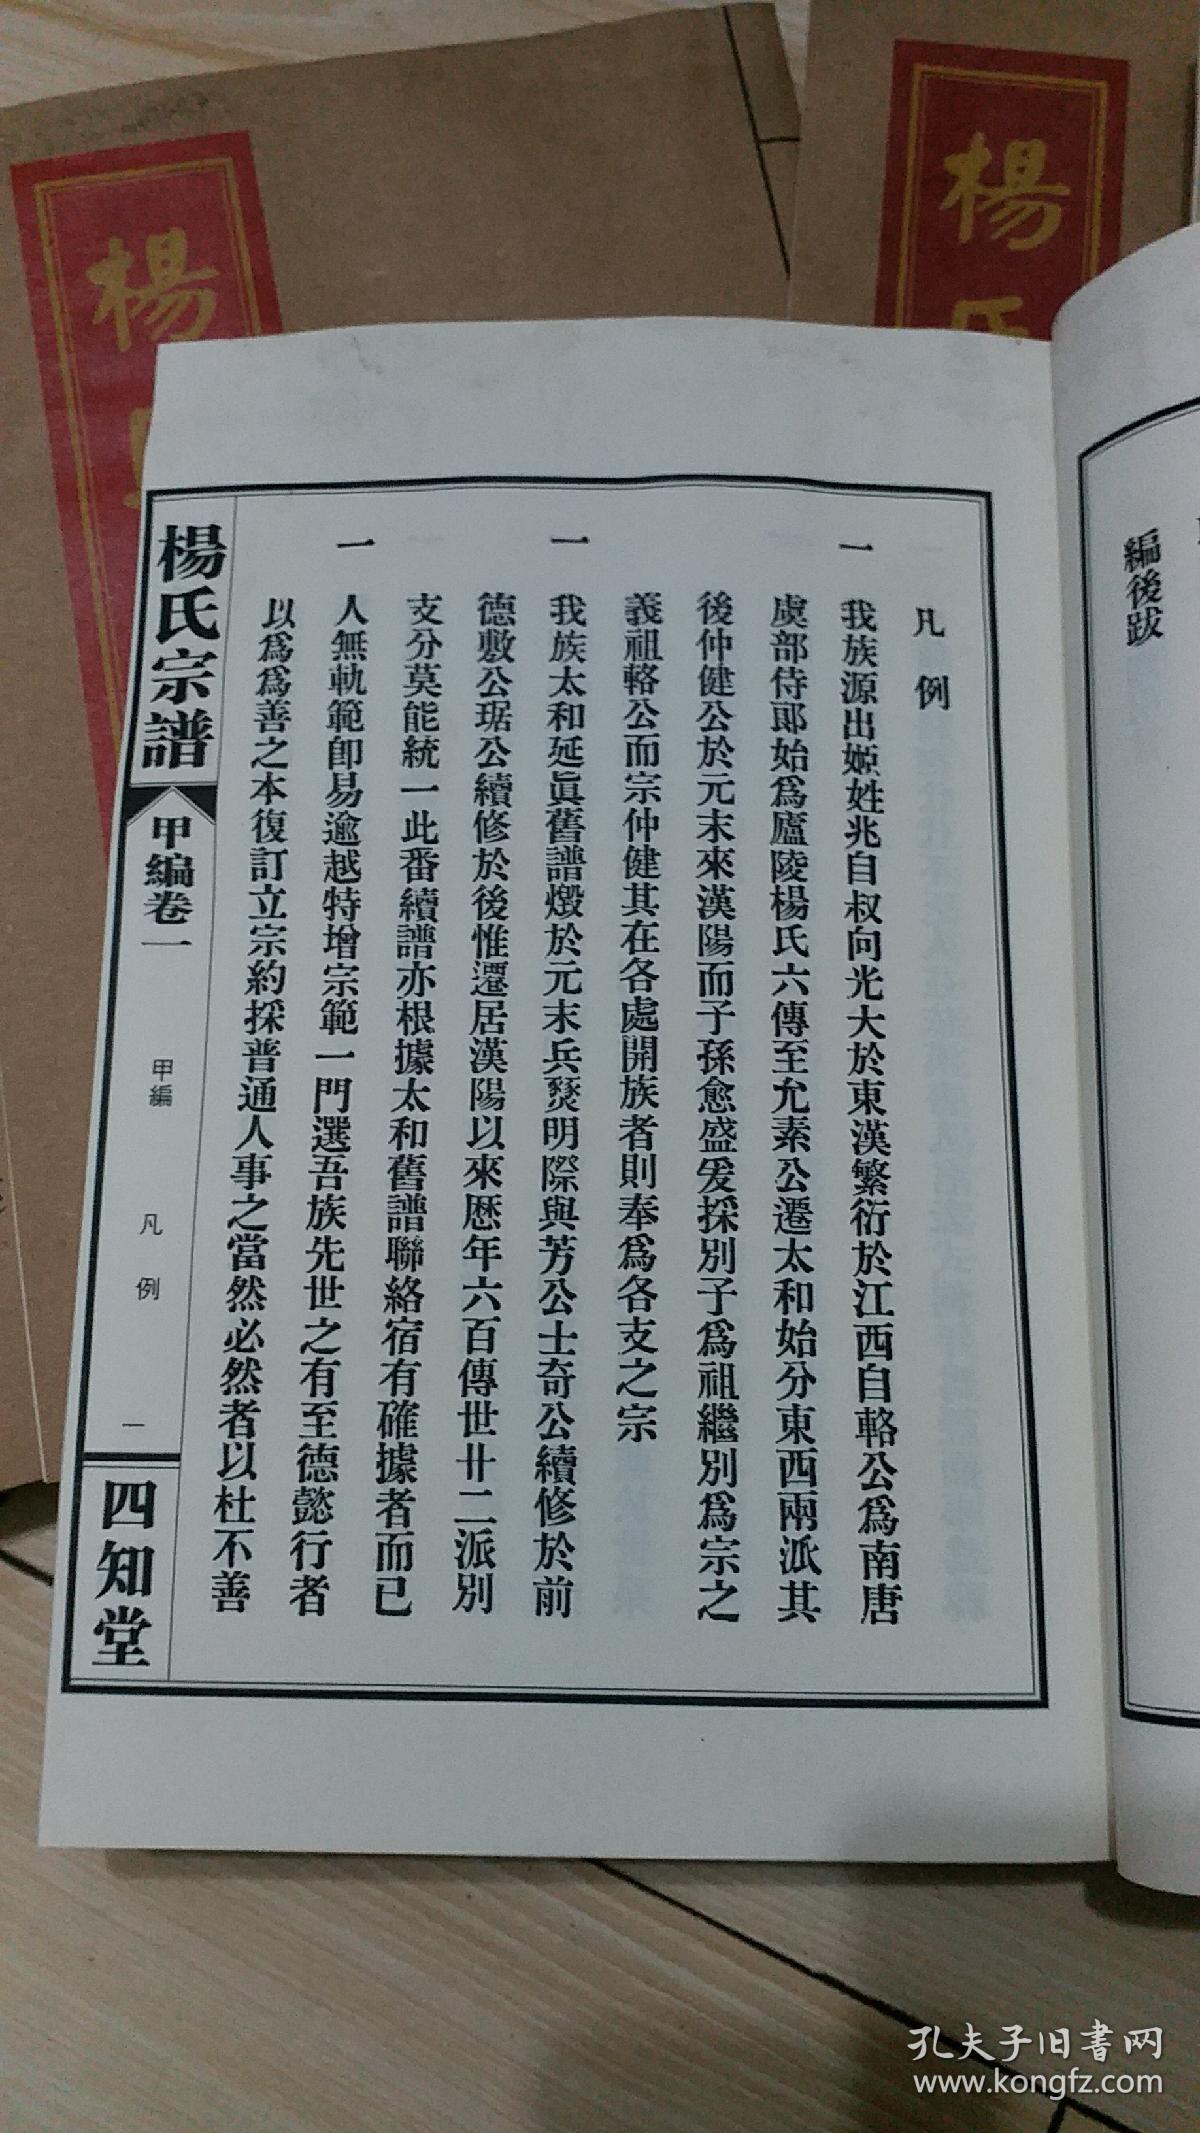 編後跋
凡例
一 我族源出姬姓兆自叔向光大於東漢繁衍於江西自輅公爲南唐
虞部侍郎始爲廬陵楊氏六傳至允素公遷太和始分東西兩派其
後仲健公於元末來漢陽而子孫愈盛爰採別子爲祖繼別爲宗之
義祖輅公而宗仲健其在各處開族者則奉爲各支之宗
一 我族太和延眞舊譜燬於元末兵燹明際與芳公士奇公續修於前
德敷公琚公續修於後惟遷居漢陽以來歷年六百傳世廿二派別
支分莫能統一此番續譜亦根據太和舊譜聯絡宿有確據者而已
一 人無軌範卽易逾越特增宗範一門選吾族先世之有至德懿行者
以爲爲善之本復訂立宗約採普通人事之當然必然者以杜不善
楊氏宗譜
甲編卷一
甲編
凡例
一
四知堂
楊
楊氏
孔夫子旧書网
www.kongfz.com